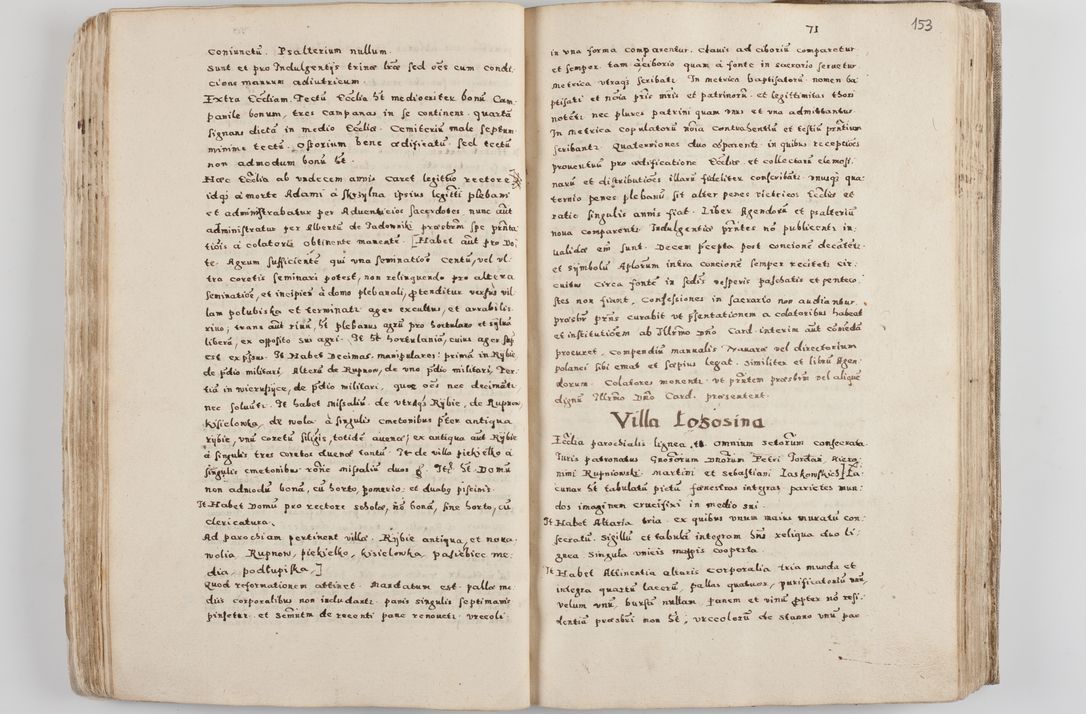 coniunctũ. Psalterium nullum.
Sunt et pro Indulgentijs trinæ lræ sed oẽs cum condi-
cione manuum adiutricum.
Extra Ecclĩam. Tectũ Ecclĩæ ht mediocriter bonũ Cam-
panile bonum, tres campanas in se continent. quartã
signans dictã in medio Ecclĩæ. Cemiteriũ male septum
minime tectũ. Ossorium bene ædificatũ sed tectũ
non admodum bonũ ht.
Hæc Ecclĩa ab vndecem annis caret legittĩo rectore
idq; a morte Adami à Skrzylna ipsius legitti plebani
et administrabatur per Aduenticios sacerdotes nunc aũt
administratur per Albertũ de Jadowniki præsbrm spe prñta-
tiõis à colatorũ obtinente manente. [Habet aũt pro Do-
te. Agrum sufficientẽ qui vna seminatiõe centũ, vel vl-
tra coretis seminari potest, non relinquendo pro altera
seminatiõe, et incipiens à domo plebanali, protenditur versus vil-
lam polubiska et terminatr ager excultus, et arrabilis
riuo; trans aũt riuũ, ht plebanus agrũ pro hortulano et syluã
liberã, ex opposito sui agri. It ht hortulaniã, cuius ager
est expssus. It Habet Decimas manipulares: primã in Rybie
de pdio militari. Alterã de Rupnow, de vno pdio militari. Ter-
tiã in wieruszyce, de pdio militari, quæ oẽs nec decimãtr
nec soluũtr. It habet missaliũ. de vtraq; Rybie, de Rupnow,
kisielowka, de wola à singulis cmetonibus pter antiqua
rybie, vnũ coretũ siliginis, totidẽ auenæ, ex antiqua aũt Rybie
à singulis tres coretos auenæ tantũ. It de villa piekielko à
singulis cmetonibus raõne missaliũ duos g. It. ht Domũ
non admodũ bonã, cũ horto, pomerio, et duabq piscinis
It Habet Domũ pro rectore scholæ, nõ bonã, sine horto, cũ
clericatura.
Ad parochiam pertinent villæ. Rybie antiqua, et noua
wolia, Rupnow, piekielko, kisielowka, pasiebiec me-
dia, podlupiska.]
Quod reformationem attinet. Mandatum est. pallæ me-
dijs corporalibus non includantr. panis singulis septimanis
pinsetur. et Semtum de recenti pane renouetr. vrceoli
71
153
in vna forma comparentur. Clauis ad ciboriũ comparetur
et semper tam à ciborio quam à fonte in sacrario seruetur
metrica vtraq; scribatr. In metrica baptisatorũ. nomen ba-
ptisati et noĩa pris mris et patrinorũ. et legittimitas thori
notetr nec plures patrini quam vnus et vna admittantur.
In metrica copulatorũ noĩa contrahentiũ et testiũ prñtium
scribantr. Quaterniones duo cõparentr. in quibus receptiões
prouentuũ pro ædificatione Ecclĩæ et collectarũ elemosi-
narũ et distributiões illarũ fideliter conscribãtr. vnusq; qua-
ternio penes plebanũ sit alter penes vietricos Ecclĩæ et
ratio singulis annis fiat. Liber Agendorũ et psalteriũ
noua comparentr. Indulgentiæ prñtes nõ publicentr in-
ualidæ em sunt. Decem pcepta post concionẽ decãtẽtr.
et symbolũ Aplorum intra concionẽ semper recitetr cir-
cuitus circa fontẽ in sedis vesperis paschatis et penteco-
stes non fiant. Confessiones in sacrario non audiantur
præsbr prñs curabit vt psentationem a colatoribus habeat
et institutiõem ab Illrmo Dño Card. interim aũt cõmẽdã
procuret. compendiũ manualis Nauaræ vel directorium
polanci sibi emat et sæpius legat. similiter et librũ Agen-
dorum. Colatores monentr. vt prñtem præsbrm vel aliquẽ
dignũ Illrmo Dño Card. præsentent.
Villa Lososina
Ecclĩa parochialis lignea, tt. omnium sctorum consecrata
Iuris patronatus Gnosorum Dnorum Petri Jordan, Hiero-
nimi Rupniowski. Martini et sebastiani Laskowskich] La-
cunar ht tabulatũ pictũ fænestras integras, parietes mun-
dos imaginem crucifixi in medio sui.
It Habet Altaria tria. ex quibus vnum maius muratũ con-
secratũ. Sigillũ et tabulã integram hns reliqua duo li-
gnea. Singula vnicis mappis cooperta.
It Habet Attinentia altaris Corporalia tria munda et
integra quartũ lacerũ, pallas quatuor, purificatoriũ vnũ,
velum vnũ, bursã nullam, panem et vinũ propter nõ resi-
dentiã præsbri non ht, vrceolorũ de stanno vnũ par